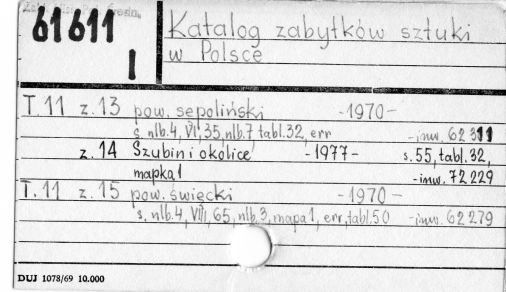 61611
I
Katalog zabytków sztuki
w Polsce
T. 11 z. 13 pow. sepoliński -1970-
s. nlb. 4, VI, 35, nlb. 7 tabl. 32, err -inw. 62311
z. 14 Szubin i okolice -1977- s. 55, tabl. 32,
mapka 1 -inw. 72229
T. 11 z. 15 pow. święcki -1970-
s, nlb. 4, VIII, 65, nlb. 3, mapa 1, err, tabl. 50 -inw. 62279
DUJ 1078/69 10.000